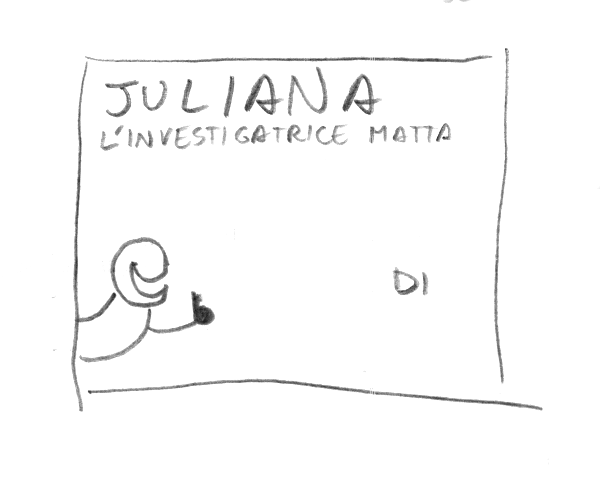 JULIANA
L'INVESTIGATRICE MATTA
DI